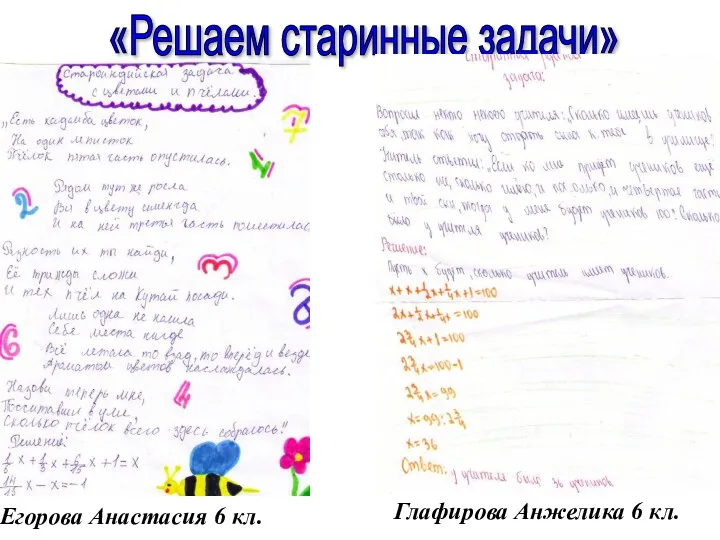 «Решаем старинные задачи»
Староиндийская задача
с цветами и пчёлами.
„Есть кадамба цветок,
На один лепесток
Пчёлок пятая часть опустилась.
Рядом тут же росла
Вся в цвету сименгда
И на ней третья часть поместилась
Разность их ты найди,
Её трижды сложи
И тех пчёл на Кутай посади.
Лишь одна не нашла
Себе места нигде
Всё летала то взад, то вперёд и везде
Ароматом цветов наслаждалась.
Назови теперь мне,
Посчитавши в уме,
Сколько пчёлок всего здесь собралось?"
Решение:
x + 1/3 x + 6/15 x + 1 = x
14/15 x - x = -1
7
2
3
8
6
4
задача:
Вопроси некто некоего учителя: „Сколько имеешь учеников
в училище?
Учитель ответил: „Если ко мне придёт учеников ещё
столько же, сколько имею, и полстолько, и четвертая часть
и твой сын, тогда у меня будет учеников 100". Сколько
было у учителя учеников?
Решение:
Пусть x будет, сколько учитель имеет учеников.
x + x + 1/2 x + 1/4 x + 1 = 100
2 3/4 x + 1 = 100
2 3/4 x = 100 - 1
2 3/4 x = 99
x = 99 : 2 3/4
x = 36
Ответ: у учителя было 36 учеников
Егорова Анастасия 6 кл.
Глафирова Анжелика 6 кл.